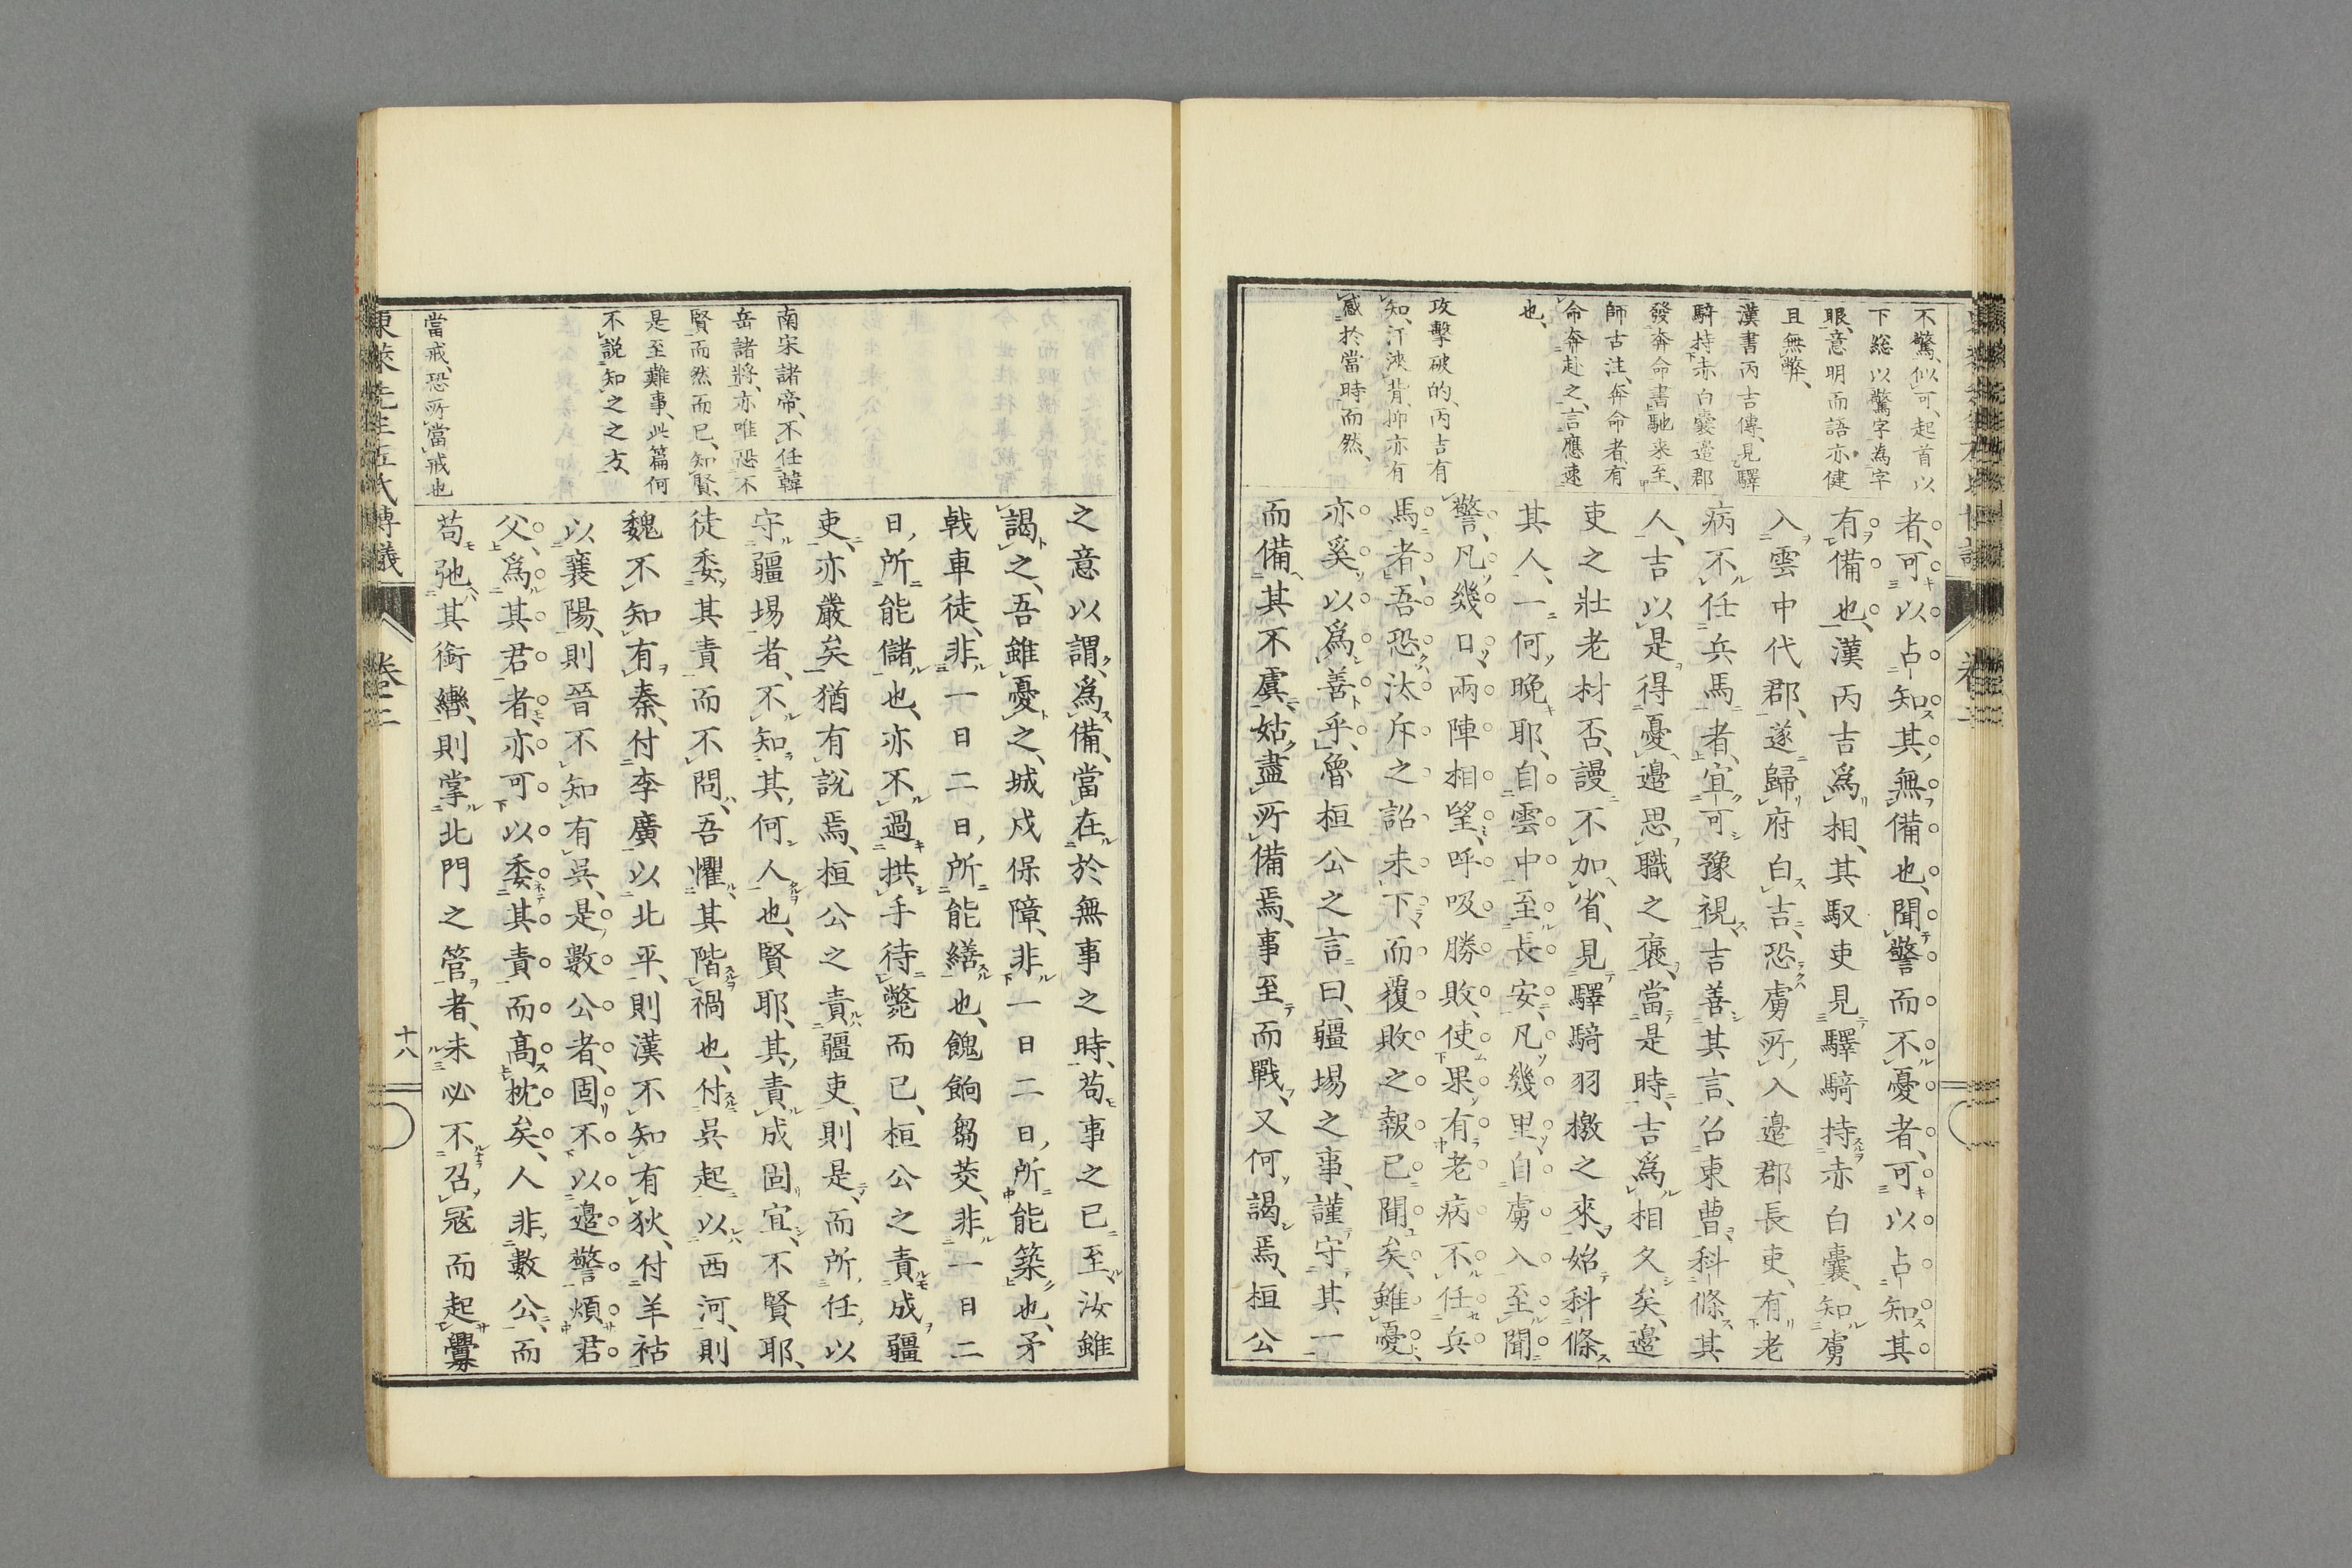 不驚、似可、起首以
下総以驚字為字
眼、意明而語亦健
且無弊、
漢書丙吉傳、見驛
騎持赤白嚢邉郡
發奔命書馳来至、
師古注、奔命者、有
命奔赴之、言應速
也、
攻擊破的、丙吉有
知、汗浹背、抑亦有
感於當時而然、
者、可以占知其無備也、聞警而不憂者、可以占知其
有備也、漢丙吉爲相、其馭吏見驛騎持赤白嚢、知虜
入雲中代郡、遂歸府白吉、恐虜所入邉郡長吏、有老
病不任兵馬者、宜可豫視、吉善其言、召東曹、科條其
人、吉以是得憂邉思職之褒、當是時、吉爲相久矣、邉
吏之壯老材否、謾不加省、見驛騎羽檄之來、始科條
其人、一何晚耶、自雲中至長安、凡幾里、自虜入至聞
警、凡幾日、兩陣相望、呼吸勝敗、使果有老病不任兵
馬者、吾恐汰斥之詔未下、而覆敗之報已聞矣、雖憂
亦奚以爲善乎、魯桓公之言曰、疆埸之事、謹守其一
而備其不虞、姑盡所備焉、事至而戰、又何謁焉、桓公
南宋諸帝、不任韓
岳諸將、亦唯恐不
賢而然而已、知賢
是至難事、此篇何
不說知之之方、
當戒、恐所當戒也
之意以謂、爲備、當在於無事之時、苟事之已至、汝雖
謁之、吾雖憂之、城戍保障、非一日二日、所能築也、矛
戟車徒、非一日二日、所能繕也、餽餉芻茭、非一日二
日、所能儲也、亦不過拱手待斃而已、桓公之責成疆
吏、亦嚴矣、猶有說焉、桓公之責疆吏、則是、而所任以
守疆埸者、不知其何人也、賢耶、其責成固宜、不賢耶、
徒委其責而不問、吾懼其階禍也、付吳起以西河、則
魏不知有秦、付李廣以北平、則漢不知有狄、付羊祜
以襄陽、則晉不知有吳、是數公者、固不以邉警煩君
父、爲其君者、亦可以委其責而高枕矣、人非數公、而
苟弛其銜轡、則掌北門之管者、未必不召冦而起釁
東萊先生左氏博議
卷二
十八